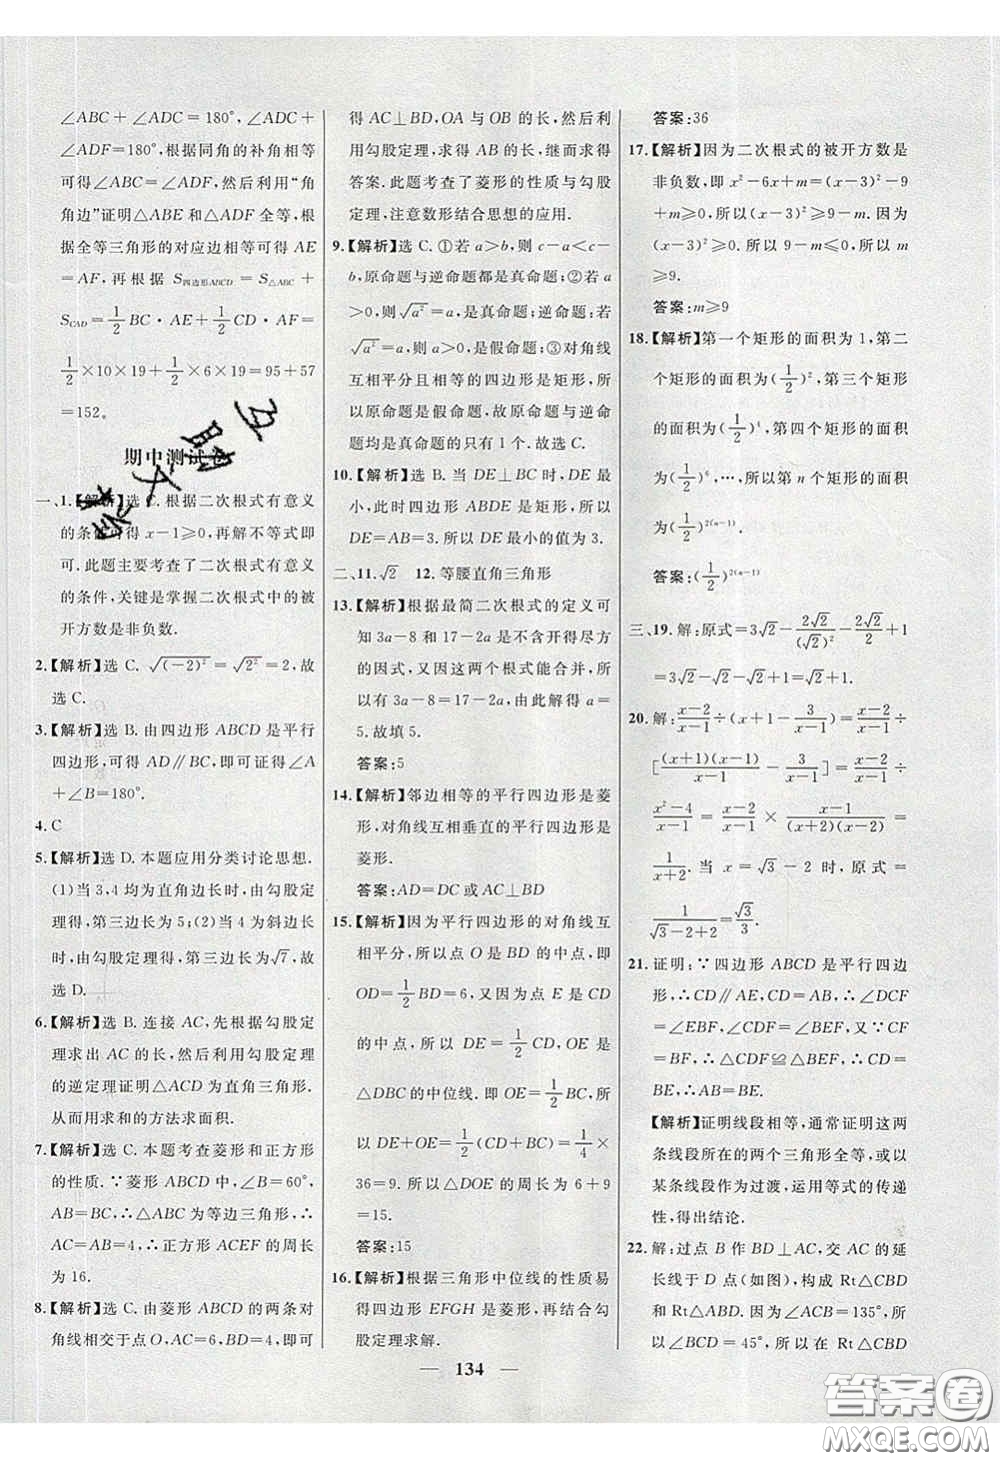 ∠ABC+∠ADC=180°,∠ADC+
∠ADF=180°,根据同角的补角相等
可得∠ABC=∠ADF,然后利用“角
角边”证明△ABE和△ADF全等,根
据全等三角形的对应边相等可得AE
=AF,再根据S四边形ABCD=S△ABC+
S△CAD=1/2BC·AE+1/2CD·AF=
1/2×10×19+1/2×6×19=95+57
=152。
期中测试卷
一、1.【解析】选C.根据二次根式有意义
的条件可得x-1≥0,再解不等式即
可.此题主要考查了二次根式有意义
的条件,关键是掌握二次根式中的被
开方数是非负数.
2.【解析】选C.√(-2)²=√2²=2,故
选C.
3.【解析】选B.由四边形ABCD是平行
四边形,可得AD∥BC,即可证得∠A
+∠B=180°.
4.C
5.【解析】选D.本题应用分类讨论思想.
(1)当3,4均为直角边长时,由勾股定
理得,第三边长为5;(2)当4为斜边长
时,由勾股定理得,第三边长为√7,故
选D.
6.【解析】选B.连接AC,先根据勾股定
理求出AC的长,然后利用勾股定理
的逆定理证明△ACD为直角三角形.
从而用求和的方法求面积.
7.【解析】选C.本题考查菱形和正方形
的性质.∵菱形ABCD中,∠B=60°,
AB=BC,∴△ABC为等边三角形,∴
AC=AB=4.∴正方形ACEF的周长
为16.
8.【解析】选C.由菱形ABCD的两条对
角线相交于点O,AC=6,BD=4,即可
得AC⊥BD,OA与OB的长,然后利
用勾股定理,求得AB的长,继而求得
答案.此题考查了菱形的性质与勾股
定理,注意数形结合思想的应用.
9.【解析】选C.①若a>b,则c-a<c-
b,原命题与逆命题都是真命题;②若a
>0,则√a²=a,是真命题;逆命题:若
√a²=a,则a>0,是假命题;③对角线
互相平分且相等的四边形是矩形,所
以原命题是假命题,故原命题与逆命
题均是真命题的只有1个.故选C.
10.【解析】选B.当DE⊥BC时,DE最
小,此时四边形ABDE是矩形,所以
DE=AB=3.所以DE最小的值为3.
二、11.√2 12.等腰直角三角形
13.【解析】根据最简二次根式的定义可
知3a-8和17-2a是不含开得尽方
的因式,又因这两个根式能合并,所
以有3a-8=17-2a,由此解得a=
5.故填5.
答案:5
14.【解析】邻边相等的平行四边形是菱
形,对角线互相垂直的平行四边形是
菱形.
答案:AD=DC或AC⊥BD
15.【解析】因为平行四边形的对角线互
相平分,所以点O是BD的中点,即
OD=1/2BD=6,又因为点E是CD
的中点,所以DE=1/2CD,OE是
△DBC的中位线.即OE=1/2BC,所
以DE+OE=1/2(CD+BC)=1/4×
36=9.所以△DOE的周长为6+9
=15.
答案:15
16.【解析】根据三角形中位线的性质易
得四边形EFGH是菱形,再结合勾
股定理求解.
答案:36
17.【解析】因为二次根式的被开方数是
非负数,即x²-6x+m=(x-3)²-9
+m≥0,所以(x-3)²≥9-m.因为
(x-3)²≥0.所以9-m≤0.所以m
≥9.
答案:m≥9
18.【解析】第一个矩形的面积为1,第二
个矩形的面积为(1/2)²,第三个矩形
的面积为(1/2)⁴,第四个矩形的面积
为(1/2)⁶,…,所以第n个矩形的面积
为(1/2)²⁽ⁿ⁻¹⁾.
答案:(1/2)²⁽ⁿ⁻¹⁾
三、19.解:原式=3√2-2√2/(√2)²-2√2/2+1
=3√2-√2-√2+1=√2+1.
20.解:(x-2)/(x-1)÷(x+1-3/(x-1))=(x-2)/(x-1)÷
[(x+1)(x-1)/(x-1)-3/(x-1)]=(x-2)/(x-1)÷
(x²-4)/(x-1)=(x-2)/(x-1)×(x-1)/((x+2)(x-2))=
1/(x+2).当x=√3-2时,原式=
1/(√3-2+2)=√3/3.
21.证明:∵四边形ABCD是平行四边
形,∴CD∥AE,CD=AB,∴∠DCF
=∠EBF,∠CDF=∠BEF,又∵CF
=BF,∴△CDF≌△BEF,∴CD=
BE,∴AB=BE.
【解析】证明线段相等,通常证明这两
条线段所在的两个三角形全等,或以
某条线段作为过渡,运用等式的传递
性,得出结论.
22.解:过点B作BD⊥AC,交AC的延
长线于D点(如图),构成Rt△CBD
和Rt△ABD.因为∠ACB=135°,所
以∠BCD=45°,所以在Rt△CBD
— 134 —
互助文爷
答案圈
MXQE.COM